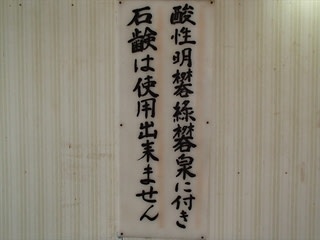 酸性明礬緑礬泉に付き
石鹸は使用出来ません